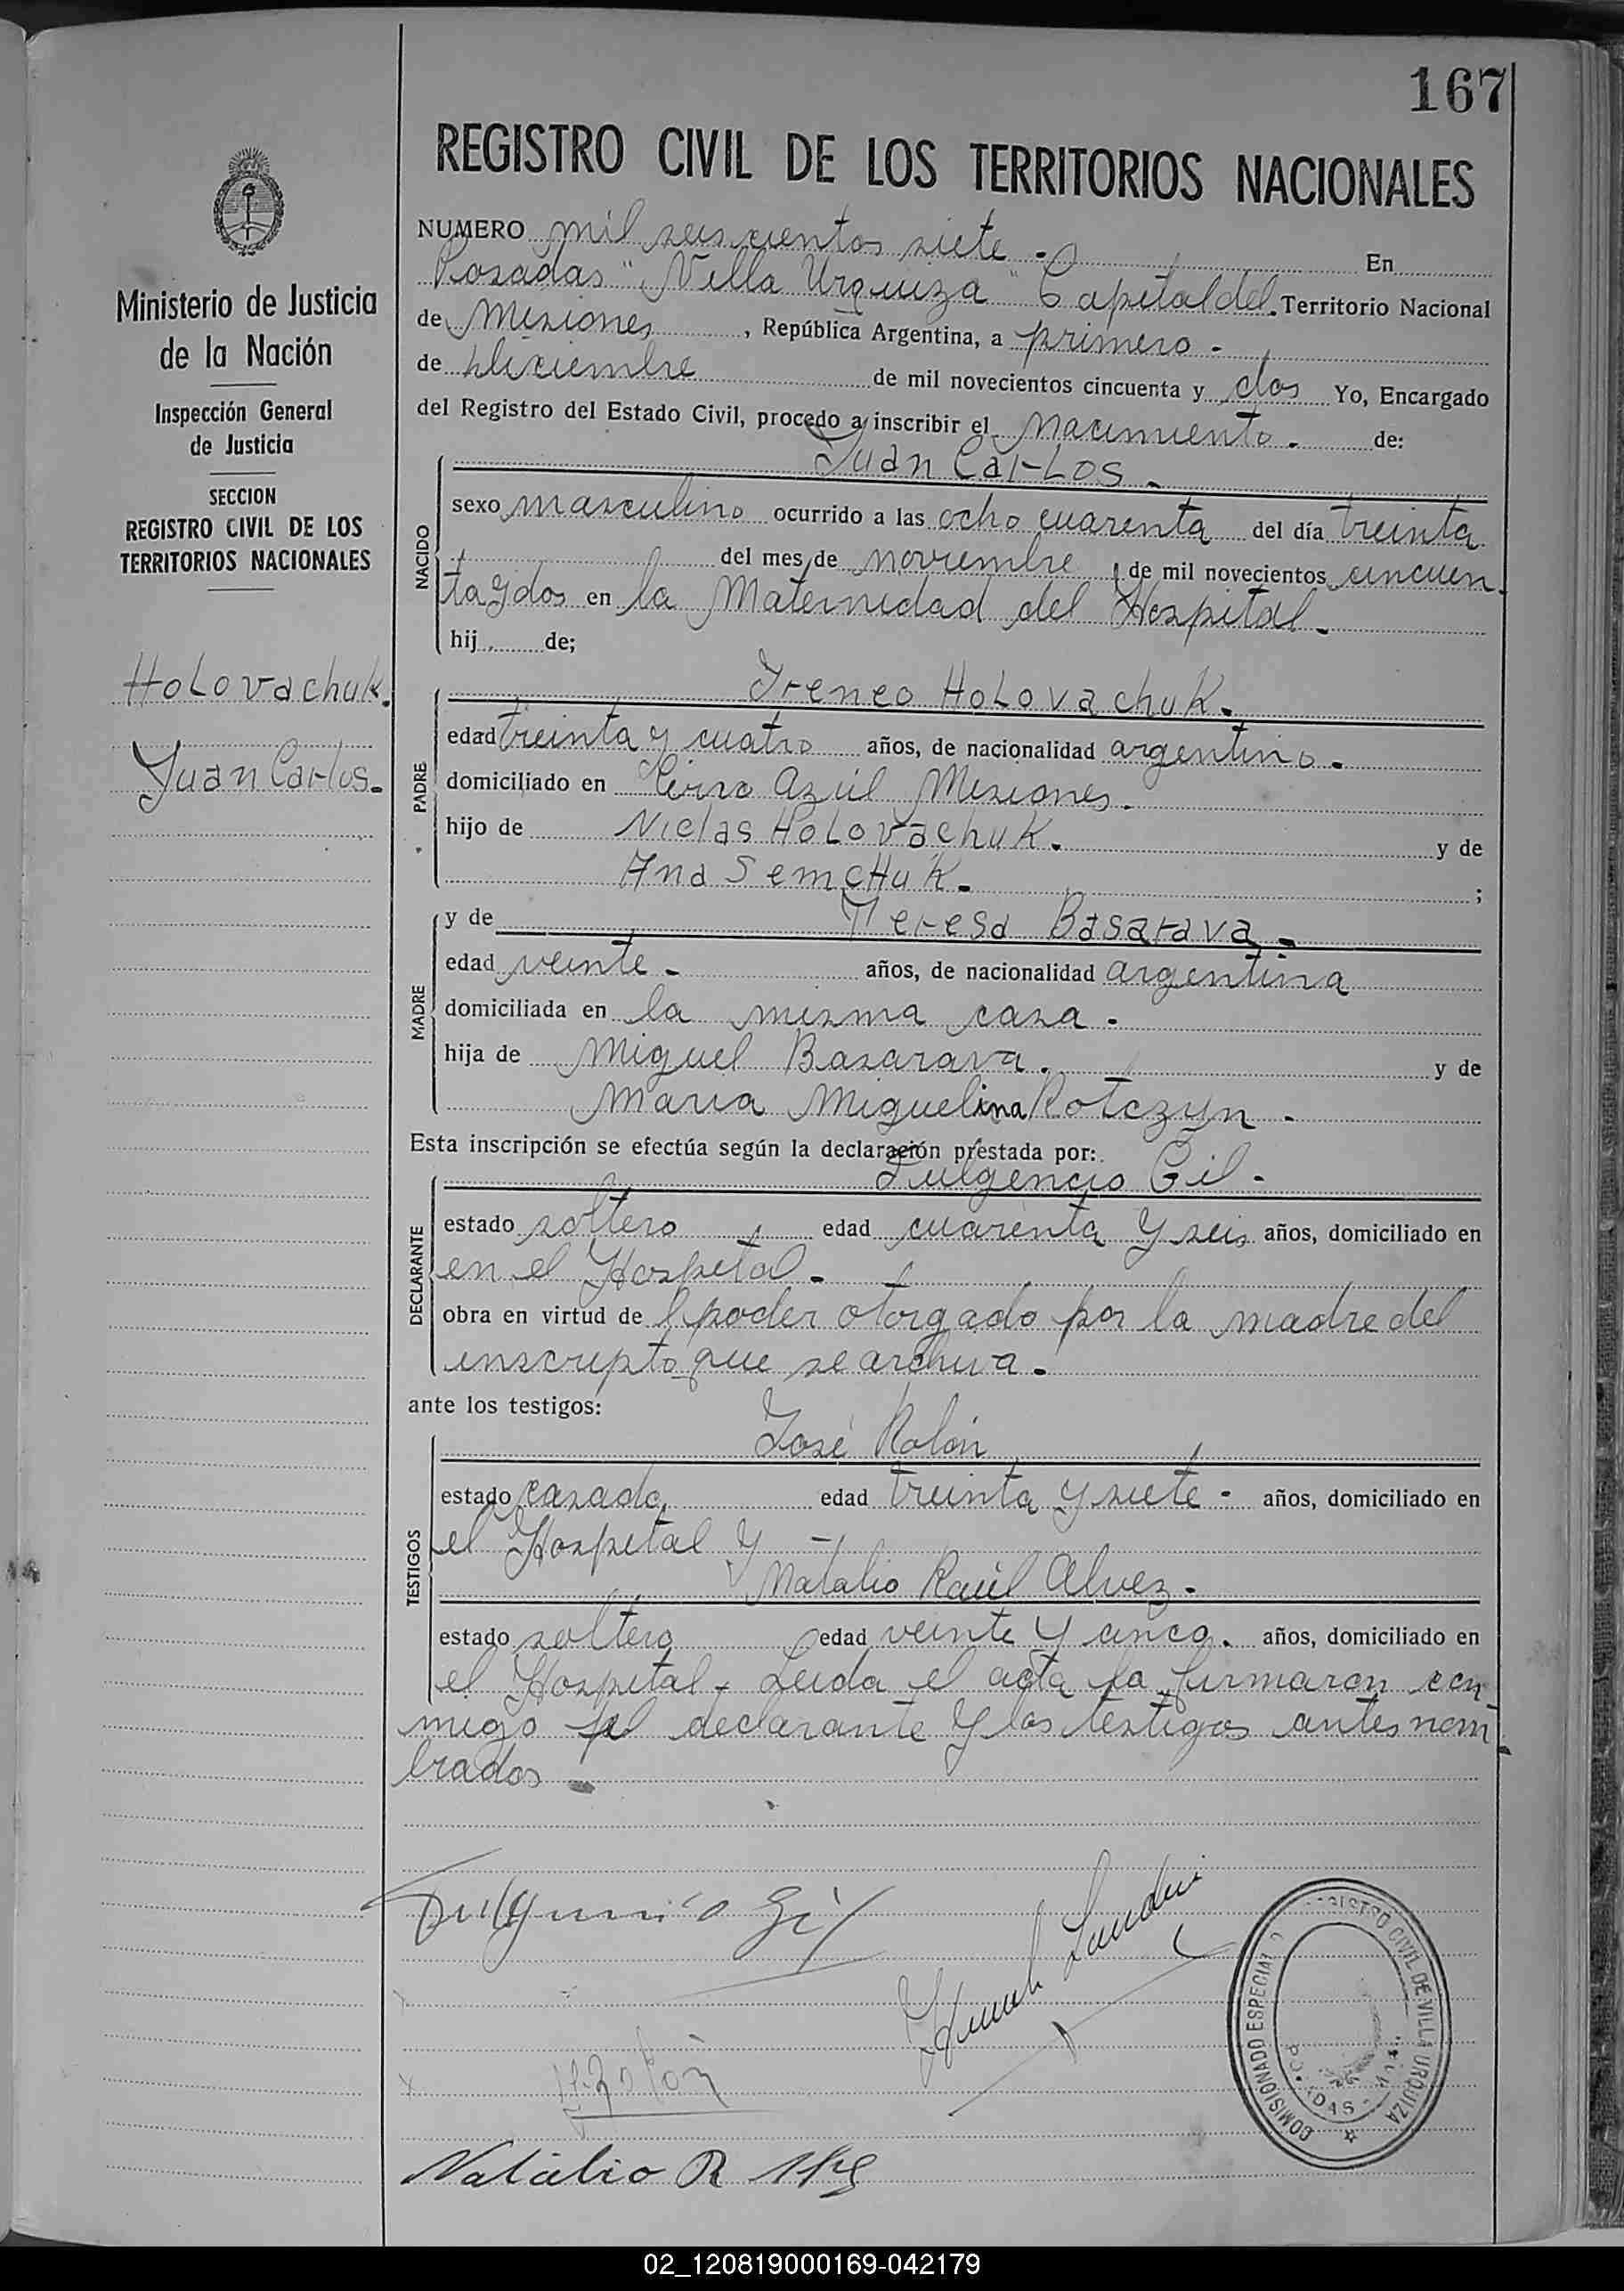 167
REGISTRO CIVIL DE LOS TERRITORIOS NACIONALES
Ministerio de Justicia
de la Nación
Inspección General
de Justicia
SECCION
REGISTRO CIVIL DE LOS
TERRITORIOS NACIONALES
Holovachuk.
Juan Carlos.-
NUMERO mil seiscientos siete.- En
Posadas "Villa Urquiza" Capital del Territorio Nacional
de Misiones, República Argentina, a primero-
de diciembre de mil novecientos cincuenta y dos Yo, Encargado
del Registro del Estado Civil, procedo a inscribir el nacimiento.- de:
Juan Carlos.-
NACIDO
sexo masculino ocurrido a las ocho cuarenta del día treinta
del mes de noviembre de mil novecientos cincuen
ta y dos en la Maternidad del Hospital.-
hij de;
PADRE
Ireneo Holovachuk.
edad treinta y cuatro años, de nacionalidad argentino.-
domiciliado en Cerro Azúl Misiones.-
hijo de Niclas Holovachuk. y de
Ana Semchuk.- ;
MADRE
y de Teresa Basarava.-
edad veinte.- años, de nacionalidad argentina
domiciliada en la misma casa.-
hija de Miguel Basarava. y de
Maria Miguelina Rotczyn.-
Esta inscripción se efectúa según la declaración prestada por:
Fulgencio Gil.-
DECLARANTE
estado soltero edad cuarenta y seis años, domiciliado en
en el Hospital.-
obra en virtud de l poder otorgado por la madre del
inscripto que se archiva.-
ante los testigos:
TESTIGOS
José Rolón
estado casado, edad treinta y siete- años, domiciliado en
el Hospital y -
Natalio Raúl Alvez.-
estado soltero edad veinte y cinco. años, domiciliado en
el Hospital.- Leida el acta la firmaron con
migo el declarante y los testigos antes nom
brados.-
Fulgencio Gil
J. Rolón
Natalio R
COMISIONADO ESPECIAL
REGISTRO CIVIL DE VILLA URQUIZA
02_120819000169-042179